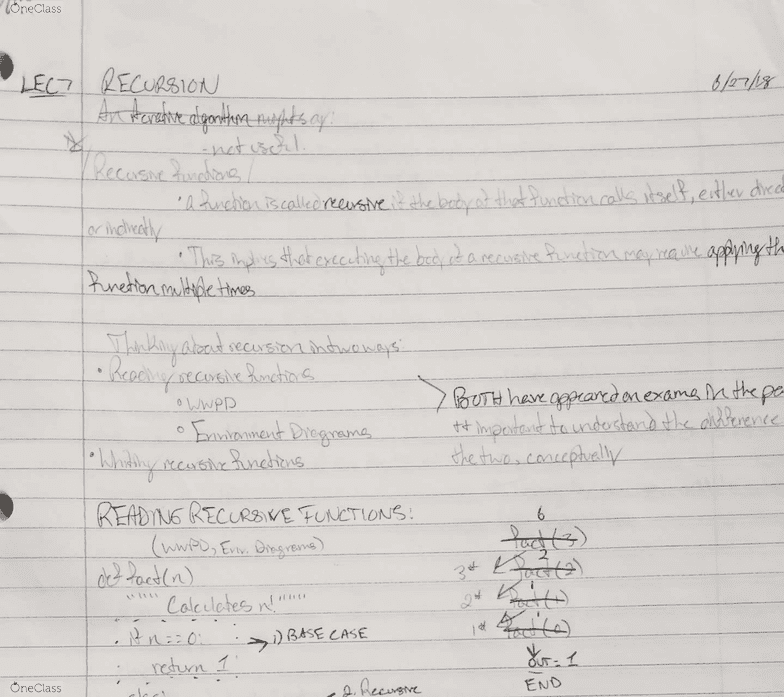 OneClass
LEC7 RECURSION 6/27/18
An iterative algorithm mights of:
- not useful.
Recursive functions
• A function is called recursive if the body of that function calls itself, either direc
or indirectly
• This implies that executing the body of a recursive function may require applying th
function multiple times
Thinking about recursion in two ways:
• Reading recursive functions
◦ WWPD
◦ Environment Diagrams
• Writing recursive functions
> BOTH have appeared on exams in the pa
++ important to understand the difference
the two, conceptually
READING RECURSIVE FUNCTIONS:
(WWPD, Env. Diagrams)
def fact(n)
""" Calculates n! """
if n == 0: → 1) BASE CASE
return 1
else:
2. Recursive
6
fact(3)
3* 2
fact(2)
2* 1
fact(1)
1* 1
fact(0)
out = 1
END
OneClass